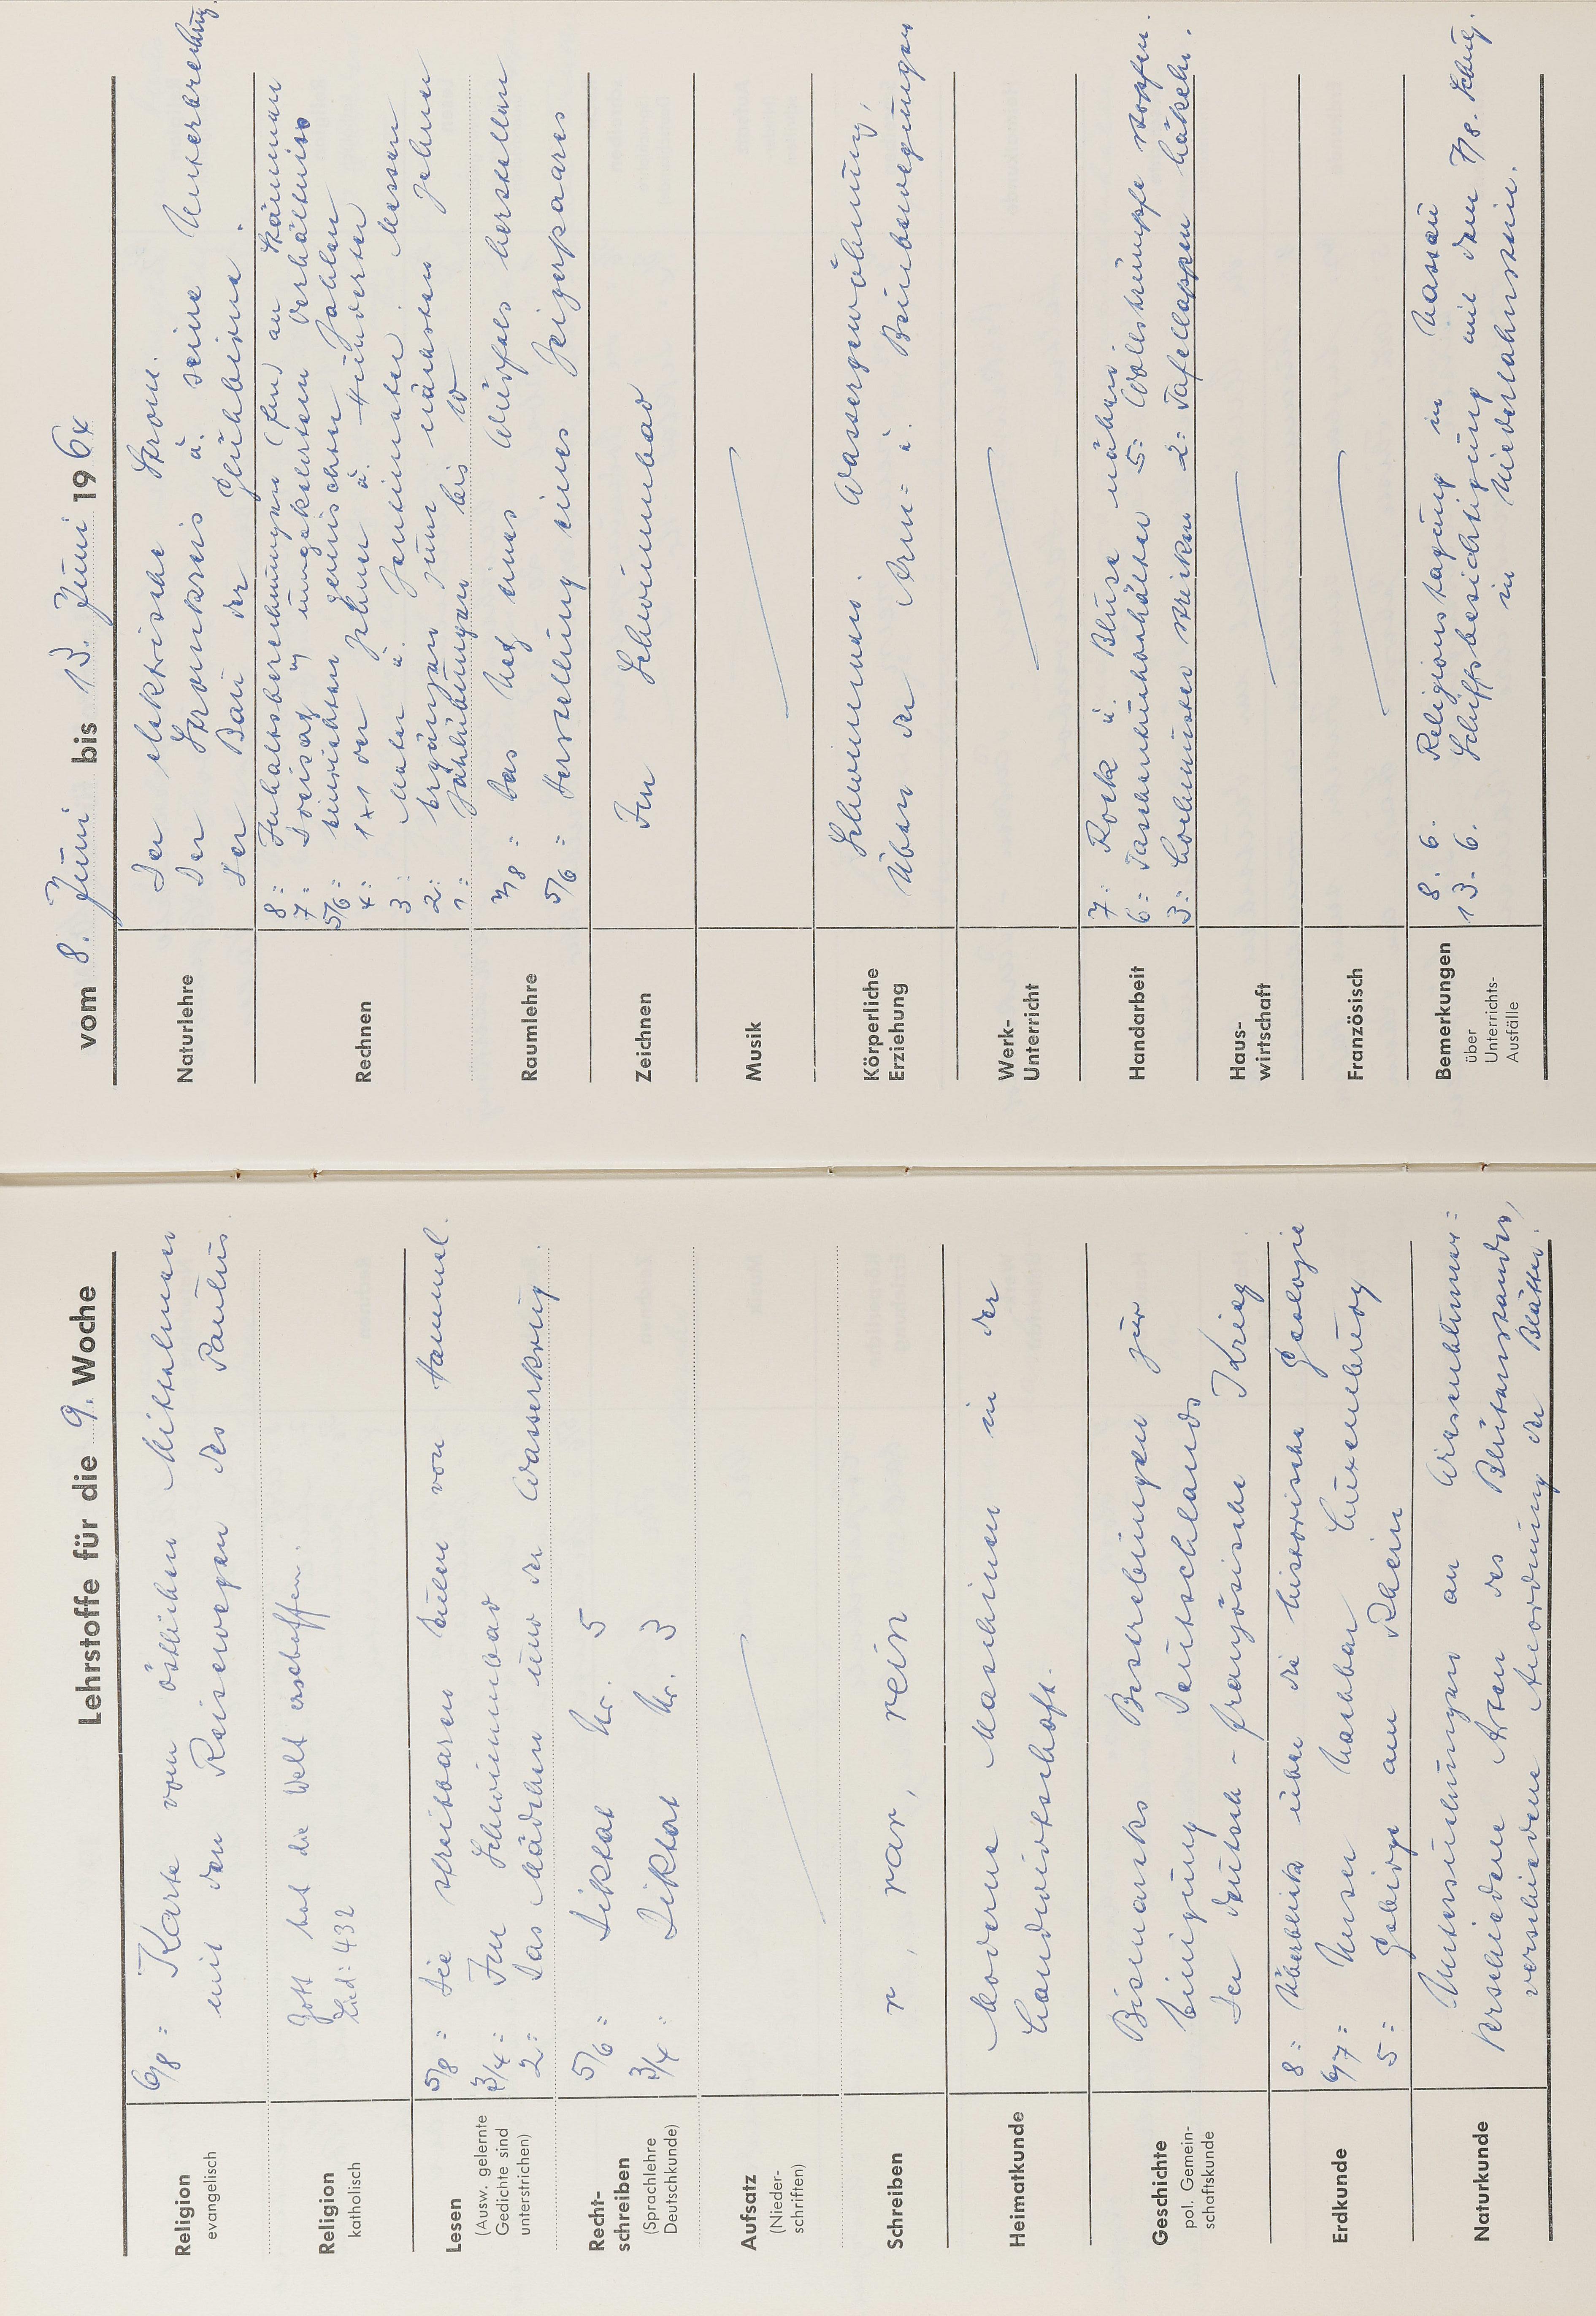 Lehrstoffe für die 9. Woche
Religion
evangelisch
6/8 = Karte vom östlichen Mittelmeer
mit den Reisewegen des Paulus
Religion
katholisch
Gott hat die Welt erschaffen.
Lied: 432
Lesen
(Ausw. gelernte
Gedichte sind
unterstrichen)
5/8 = Die streitbaren Eulen von Hammel.
3/4 = Im Schwimmbad
2 = Das Mädchen und der Wasserkrug
Recht-
schreiben
(Sprachlehre
Deutschkunde)
5/6 = Diktat Nr. 5
3/4 = Diktat Nr. 3
Aufsatz
(Nieder-
schriften)
Schreiben
r, rar, rein
Heimatkunde
Moderne Maschinen in der
Landwirtschaft.
Geschichte
pol. Gemein-
schaftskunde
Bismarcks Bestrebungen zur
Einigung Deutschlands
Der deutsch-französische Krieg
Erdkunde
8 = Überblick über die historische Geologie
6/7 = Unser Nachbar Luxemburg
5 = Gebirge am Rhein
Naturkunde
Untersuchungen an Wiesenblumen =
verschiedene Arten des Blütenstandes,
verschiedene Anordnung der Blätter.
vom 8. Juni bis 13. Juni 1964
Naturlehre
Der elektrische Strom.
Der Stromkreis u. seine Unterbrechung.
Der Bau der Glühbirne.
Rechnen
8 = Inhaltsberechnungen (fm) an Stämmen
7 = Dreisatz im umgekehrten Verhältnis
5/6 = einrichten gemischter Zahlen
4 = 1x1 der Zehner u. Hunderter
3 = Meter u. Zentimeter. Messen
2 = ergänzen zum nächsten Zehner
1 = Zählübungen bis 10
Raumlehre
7/8 = Das Netz eines Würfels herstellen
5/6 = Herstellung eines Zeigerpaares
Zeichnen
Im Schwimmbad
Musik
Körperliche
Erziehung
Schwimmen. Wassergewöhnung,
Üben der Arm= u. Beinbewegungen
Werk-
Unterricht
Handarbeit
7 = Rock u. Bluse nähen
6 = Taschentuchbehälter 5 = Wollstrümpfe stopfen.
3 = Lochmuster stricken 2 = Tafellappen häkeln.
Haus-
wirtschaft
Französisch
Bemerkungen
über
Unterrichts-
Ausfälle
8. 6. Religionstagung in Nassau
13. 6. Schiffsbesichtigung mit dem 7/8. Schulj.
in Niederlahnstein.